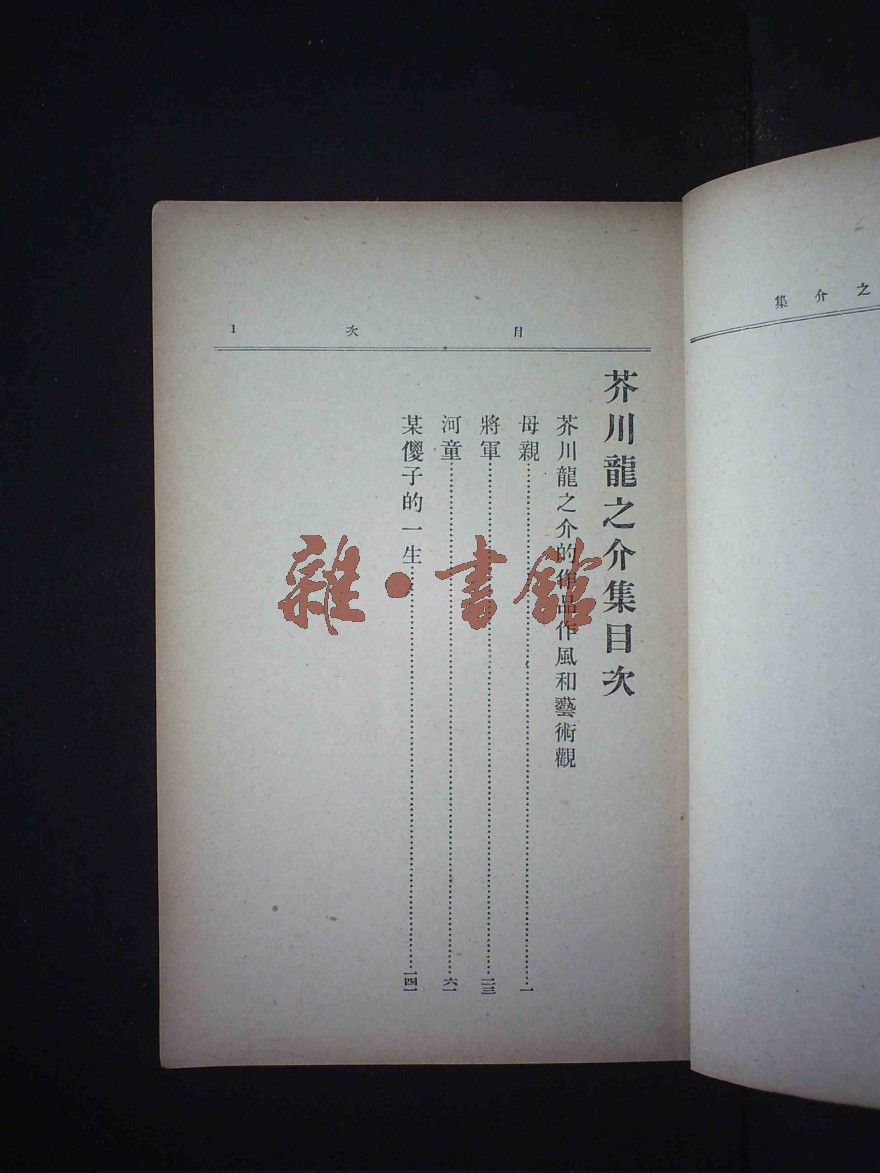 目次 1
芥川龍之介集目次
芥川龍之介的作品作風和藝術觀
母親……一
將軍……二三
河童……六一
某傻子的一生……一四一
之介集
雜·書館